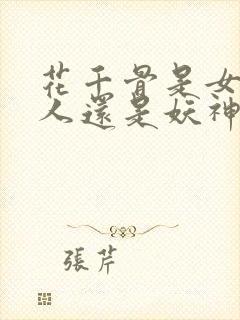 花千骨是女
人還是妖神
張芹